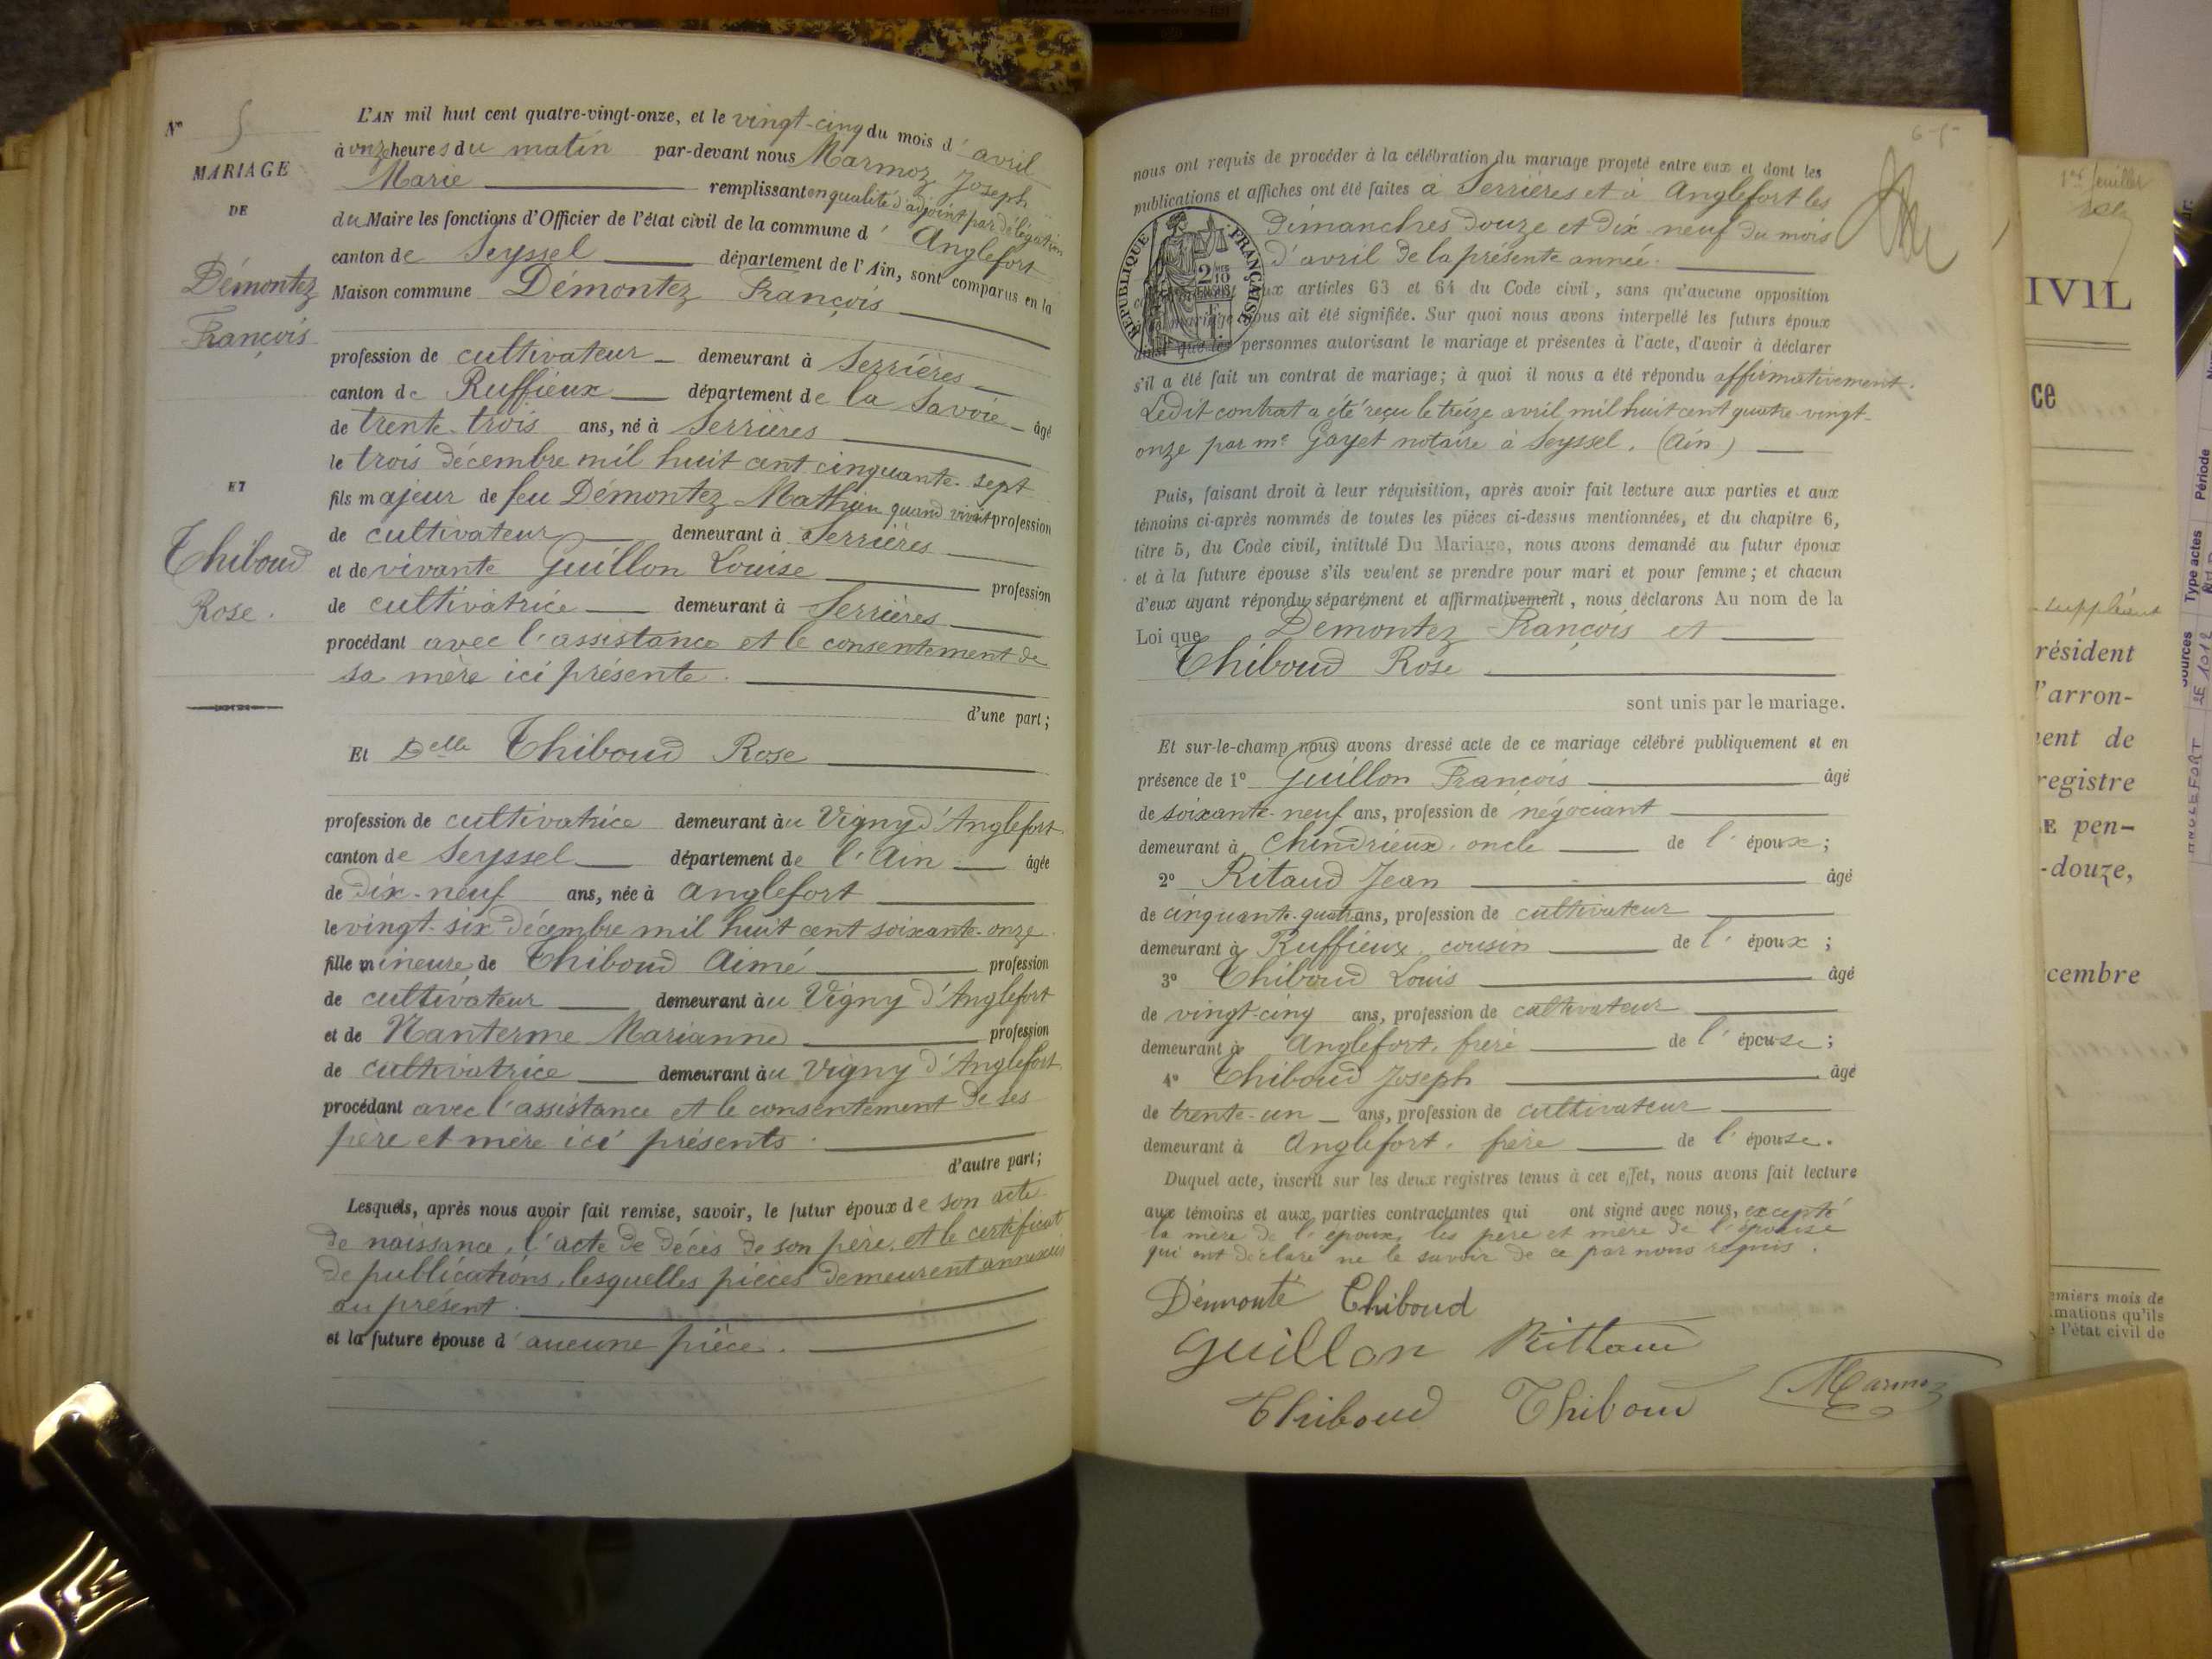 N° 5
MARIAGE
DE
Démontez
François
ET
Thiboud
Rose.
L'AN mil huit cent quatre-vingt-onze, et le vingt-cinq du mois d'avril
à onze heures du matin par-devant nous Marmoz Joseph
Marie remplissant en qualité d'adjoint par délégation
du Maire les fonctions d'Officier de l'état civil de la commune d'Anglefort
canton de Seyssel département de l'Ain, sont comparus en la
Maison commune Démontez François
profession de cultivateur demeurant à Serrières
canton de Ruffieux département de la Savoie âgé
de trente-trois ans, né à Serrières
le trois décembre mil huit cent cinquante-sept
fils majeur de feu Démontez Mathieu quand vivait profession
de cultivateur demeurant à Serrières
et de vivante Guillon Louise profession
de cultivatrice demeurant à Serrières
procédant avec l'assistance et le consentement de
sa mère ici présente.
d'une part;
Et Delle Thiboud Rose
profession de cultivatrice demeurant au Vigny d'Anglefort
canton de Seyssel département de l'Ain âgée
de dix-neuf ans, née à Anglefort
le vingt-six décembre mil huit cent soixante-onze
fille mineure de Thiboud Aimé profession
de cultivateur demeurant au Vigny d'Anglefort
et de Nanterme Marianne profession
de cultivatrice demeurant au Vigny d'Anglefort
procédant avec l'assistance et le consentement de ses
père et mère ici présents.
d'autre part;
Lesquels, après nous avoir fait remise, savoir, le futur époux de son acte
de naissance, l'acte de décès de son père, et le certificat
de publications, lesquelles pièces demeurent annexées
au présent.
et la future épouse d'aucune pièce.
nous ont requis de procéder à la célébration du mariage projeté entre eux et dont les
publications et affiches ont été faites à Serrières et à Anglefort les
Dimanches douze et dix-neuf du mois
d'avril de la présente année.
RÉPUBLIQUE FRANÇAISE
aux articles 63 et 64 du Code civil, sans qu'aucune opposition
mariage nous ait été signifiée. Sur quoi nous avons interpellé les futurs époux
ainsi que les personnes autorisant le mariage et présentes à l'acte, d'avoir à déclarer
s'il a été fait un contrat de mariage; à quoi il nous a été répondu affirmativement.
Ledit contrat a été reçu le treize avril mil huit cent quatre-vingt-
onze par me Gayet notaire à Seyssel. (Ain)
Puis, faisant droit à leur réquisition, après avoir fait lecture aux parties et aux
témoins ci-après nommés de toutes les pièces ci-dessus mentionnées, et du chapitre 6,
titre 5, du Code civil, intitulé Du Mariage, nous avons demandé au futur époux
et à la future épouse s'ils veulent se prendre pour mari et pour femme; et chacun
d'eux ayant répondu séparément et affirmativement, nous déclarons Au nom de la
Loi que Démontez François et
Thiboud Rose
sont unis par le mariage.
Et sur-le-champ nous avons dressé acte de ce mariage célébré publiquement et en
présence de 1° Guillon François âgé
de soixante-neuf ans, profession de négociant
demeurant à Chindrieux. oncle de l'époux;
2° Ritaud Jean âgé
de cinquante-quatre ans, profession de cultivateur
demeurant à Ruffieux, cousin de l'époux;
3° Thiboud Louis âgé
de vingt-cinq ans, profession de cultivateur
demeurant à Anglefort, frère de l'épouse;
4° Thiboud Joseph âgé
de trente-un ans, profession de cultivateur
demeurant à Anglefort. frère de l'épouse.
Duquel acte, inscrit sur les deux registres tenus à cet effet, nous avons fait lecture
aux témoins et aux parties contractantes qui ont signé avec nous, excepté
la mère de l'époux, les père et mère de l'épouse
qui ont déclaré ne le savoir de ce par nous requis.
Démonté Thiboud
Guillon Rittaud
Thiboud Thiboud Marmoz
1er feuillet
IVIL
ce
suppléant
résident
l'arron-
ent de
registre
E pen-
-douze,
cembre
emiers mois de
mations qu'ils
l'état civil de
Sources Type actes Période
ANGLEFORT